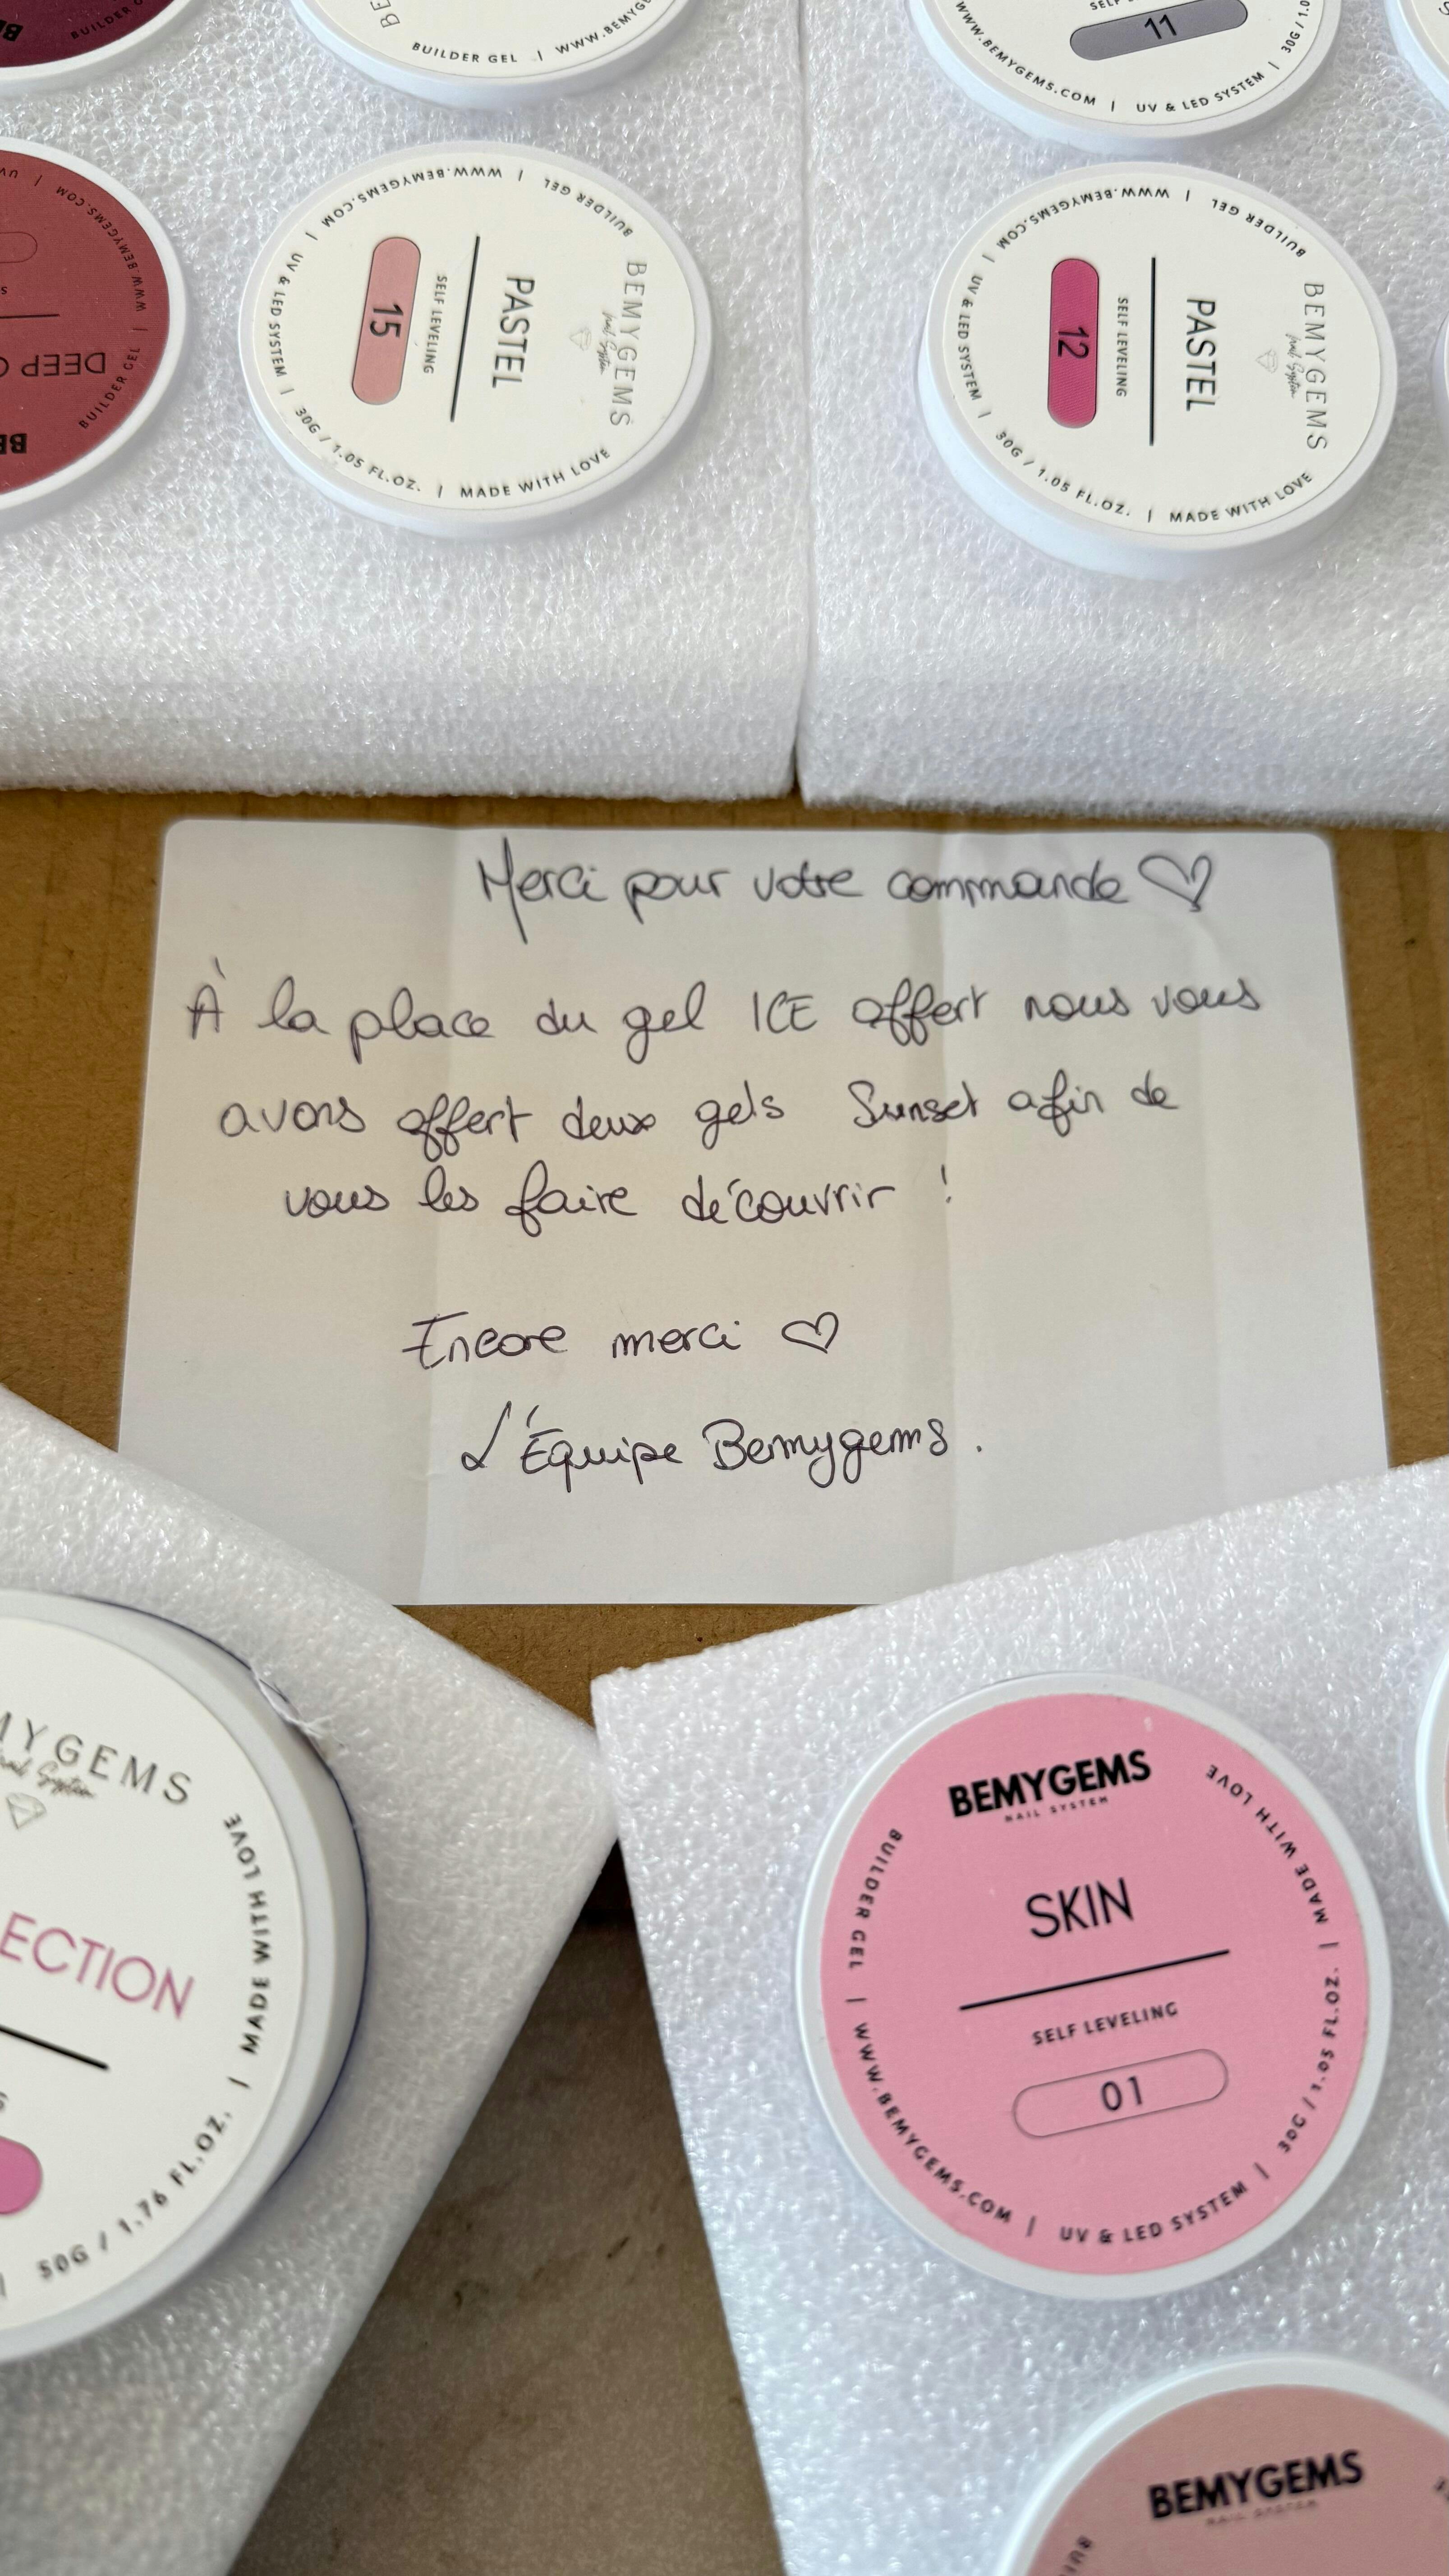 BUILDER GEL | WWW.BEMYG
SELF
11
WWW.BEMYGEMS.COM | UV & LED SYSTEM | 30G / 1.0
DEEP
BUILDER GEL
WWW.BEMYGEMS.COM
BEMYGEMS
nail System
PASTEL
SELF LEVELING
15
BUILDER GEL | WWW.BEMYGEMS.COM | UV & LED SYSTEM | 30G / 1.05 FL.OZ. | MADE WITH LOVE
BEMYGEMS
nail System
PASTEL
SELF LEVELING
12
BUILDER GEL | WWW.BEMYGEMS.COM | UV & LED SYSTEM | 30G / 1.05 FL.OZ. | MADE WITH LOVE
Merci pour votre commande ♡
À la place du gel ICE offert nous vous
avons offert deux gels Sunset afin de
vous les faire découvrir !
Encore merci ♡
L'Équipe Bemygems.
MYGEMS
nail System
ECTION
50G / 1.76 FL.OZ. | MADE WITH LOVE
BEMYGEMS
NAIL SYSTEM
SKIN
SELF LEVELING
01
BUILDER GEL | WWW.BEMYGEMS.COM | UV & LED SYSTEM | 30G / 1.05 FL.OZ. | MADE WITH LOVE
BEMYGEMS
NAIL SYSTEM